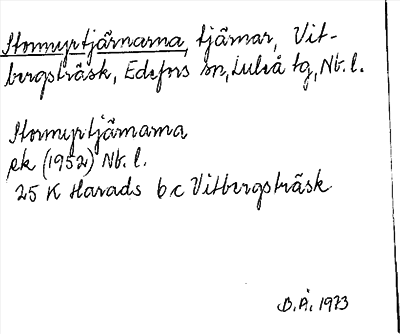 Stormyrtjärnarna, tjärnar, Vit-
bergsträsk, Edefors sn, Luleå tg, Nb. l.
Stormyrtjärnarna
ek (1952) Nb. l.
25 K Harads 6 c Vitbergsträsk
B.Å. 1973